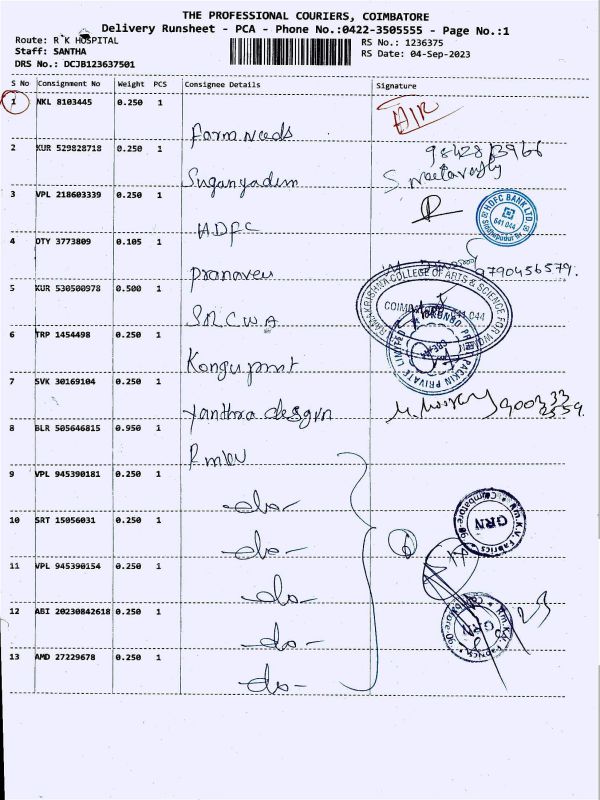 THE PROFESSIONAL COURIERS, COIMBATORE
Delivery Runsheet - PCA - Phone No.:0422-3505555 - Page No.:1
Route: R K HOSPITAL
RS No.: 1236375
Staff: SANTHA
RS Date: 04-Sep-2023
DRS No.: DCJB123637501
S No Consignment No Weight PCS Consignee Details Signature
1 NKL 8103445 0.250 1
AIR
2 KUR 529828718 0.250 1
3 VPL 218603339 0.250 1
HDFC BANK LTD.
641 044
HDFC
4 OTY 3773809 0.105 1
9790456579.
5 KUR 530500978 0.500 1
RAMAKRISHNA COLLEGE OF ARTS & SCIENCE FOR WOMEN
COIMBATORE 641 044
SRCWA
6 TRP 1454498 0.250 1
PACKIN PRIVATE LIMITED
7 SVK 30169104 0.250 1
yanthra design
8 BLR 505646815 0.950 1
Rmkv
9 VPL 945390181 0.250 1
-do-
10 SRT 15056031 0.250 1
-do-
Rm.K.V. Fabrics
Coimbatore-09
GRN
6
11 VPL 945390154 0.250 1
-do-
12 ABI 20230842618 0.250 1
-do-
GRN
13 AMD 27229678 0.250 1
-do-